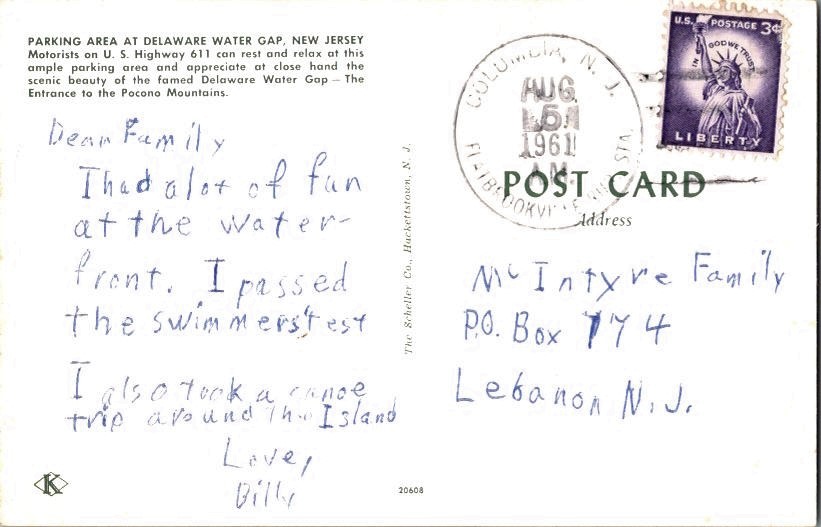 PARKING AREA AT DELAWARE WATER GAP, NEW JERSEY
Motorists on U. S. Highway 611 can rest and relax at this
ample parking area and appreciate at close hand the
scenic beauty of the famed Delaware Water Gap — The
Entrance to the Pocono Mountains.
Dear Family
I had a lot of fun
at the water-
front. I passed
the swimmers test
I also took a canoe
trip around the Island
Love,
Billy
K
The Scheller Co., Hackettstown, N. J.
20608
COLUMBIA, N. J.
AUG
5
1961
A.M.
FLATBROOKVILLE STA.
U.S. POSTAGE 3¢
IN GOD WE TRUST
LIBERTY
POST CARD
Address
McIntyre Family
P.O. Box 774
Lebanon N.J.